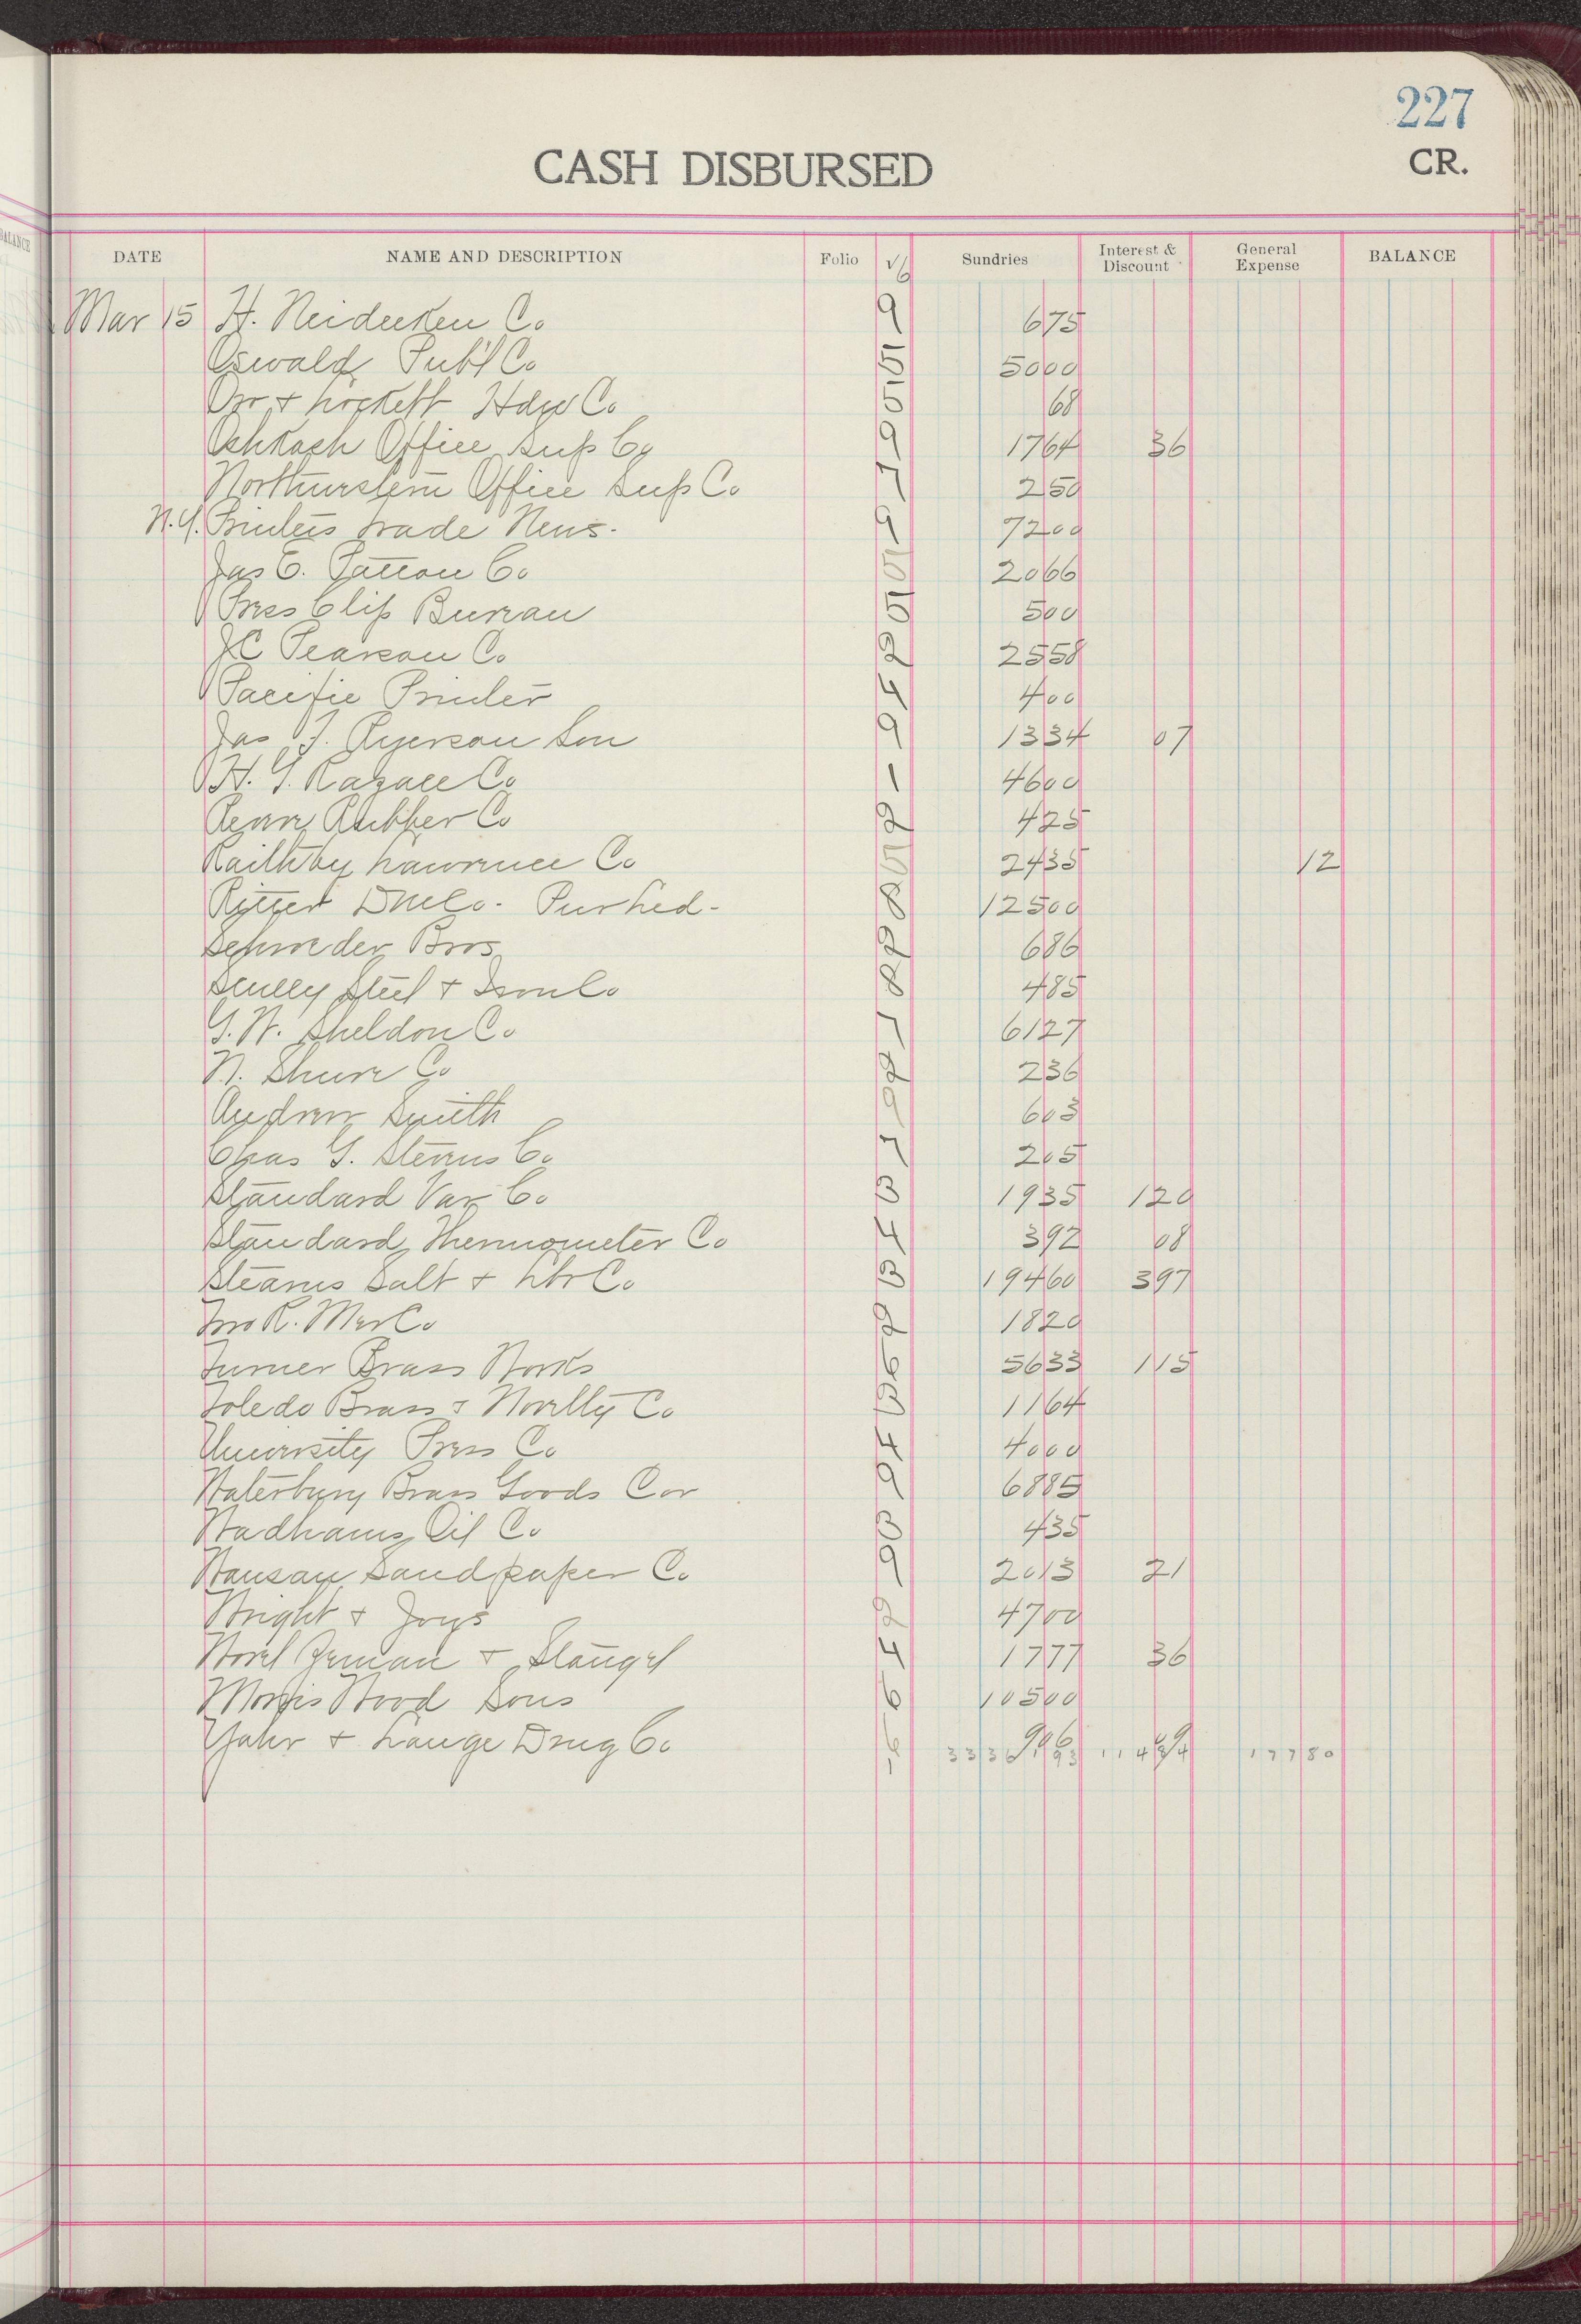 227
CASH DISBURSED CR.
BALANCE
DATE NAME AND DESCRIPTION Folio √ Sundries Interest & Discount General Expense BALANCE
Mar 15 H. Neidecken Co 9 675
Oswald Pub'l Co 5 5000
Orr & Lockett Hdw Co 5 68
Oshkosh Office Sup Co 9 1764 36
Northwestern Office Sup Co 7 250
N.Y. Printers Trade News. 9 7200
Jas E. Patton Co 5 2066
Press Clip Bureau 5 500
JC Pearson Co 2 2558
Pacific Printer 4 400
Jas T. Ryerson Son 9 1334 07
H. G. Razall Co 1 4600
Rubber Co 2 425
Raithby Lawrence Co 5 2435 12
Ritter Co. 8 12500
Schroeder Bros 2 686
Scully Steel & Iron Co 8 485
G. W. Sheldon Co 7 6127
N. Shure Co 2 236
Andrew Smith 9 603
Chas G. Stevens Co 7 205
Standard Var Co 3 1935 120
Standard Thermometer Co 4 392 08
Stearns Salt & Lbr Co 3 19460 397
R. Co 2 1820
Turner Brass Works 6 5633 115
Toledo Brass & Novelty Co 3 1164
University Press Co 4 4000
Waterbury Brass Goods Cor 9 6885
Wadhams Oil Co 3 435
Wausau Sandpaper Co. 9 2013 21
Wright & Joys 2 4700
German & Stangel 4 1777 36
Morris Wood Sons 6 10500
Yahr & Lange Drug Co 6 906
17780